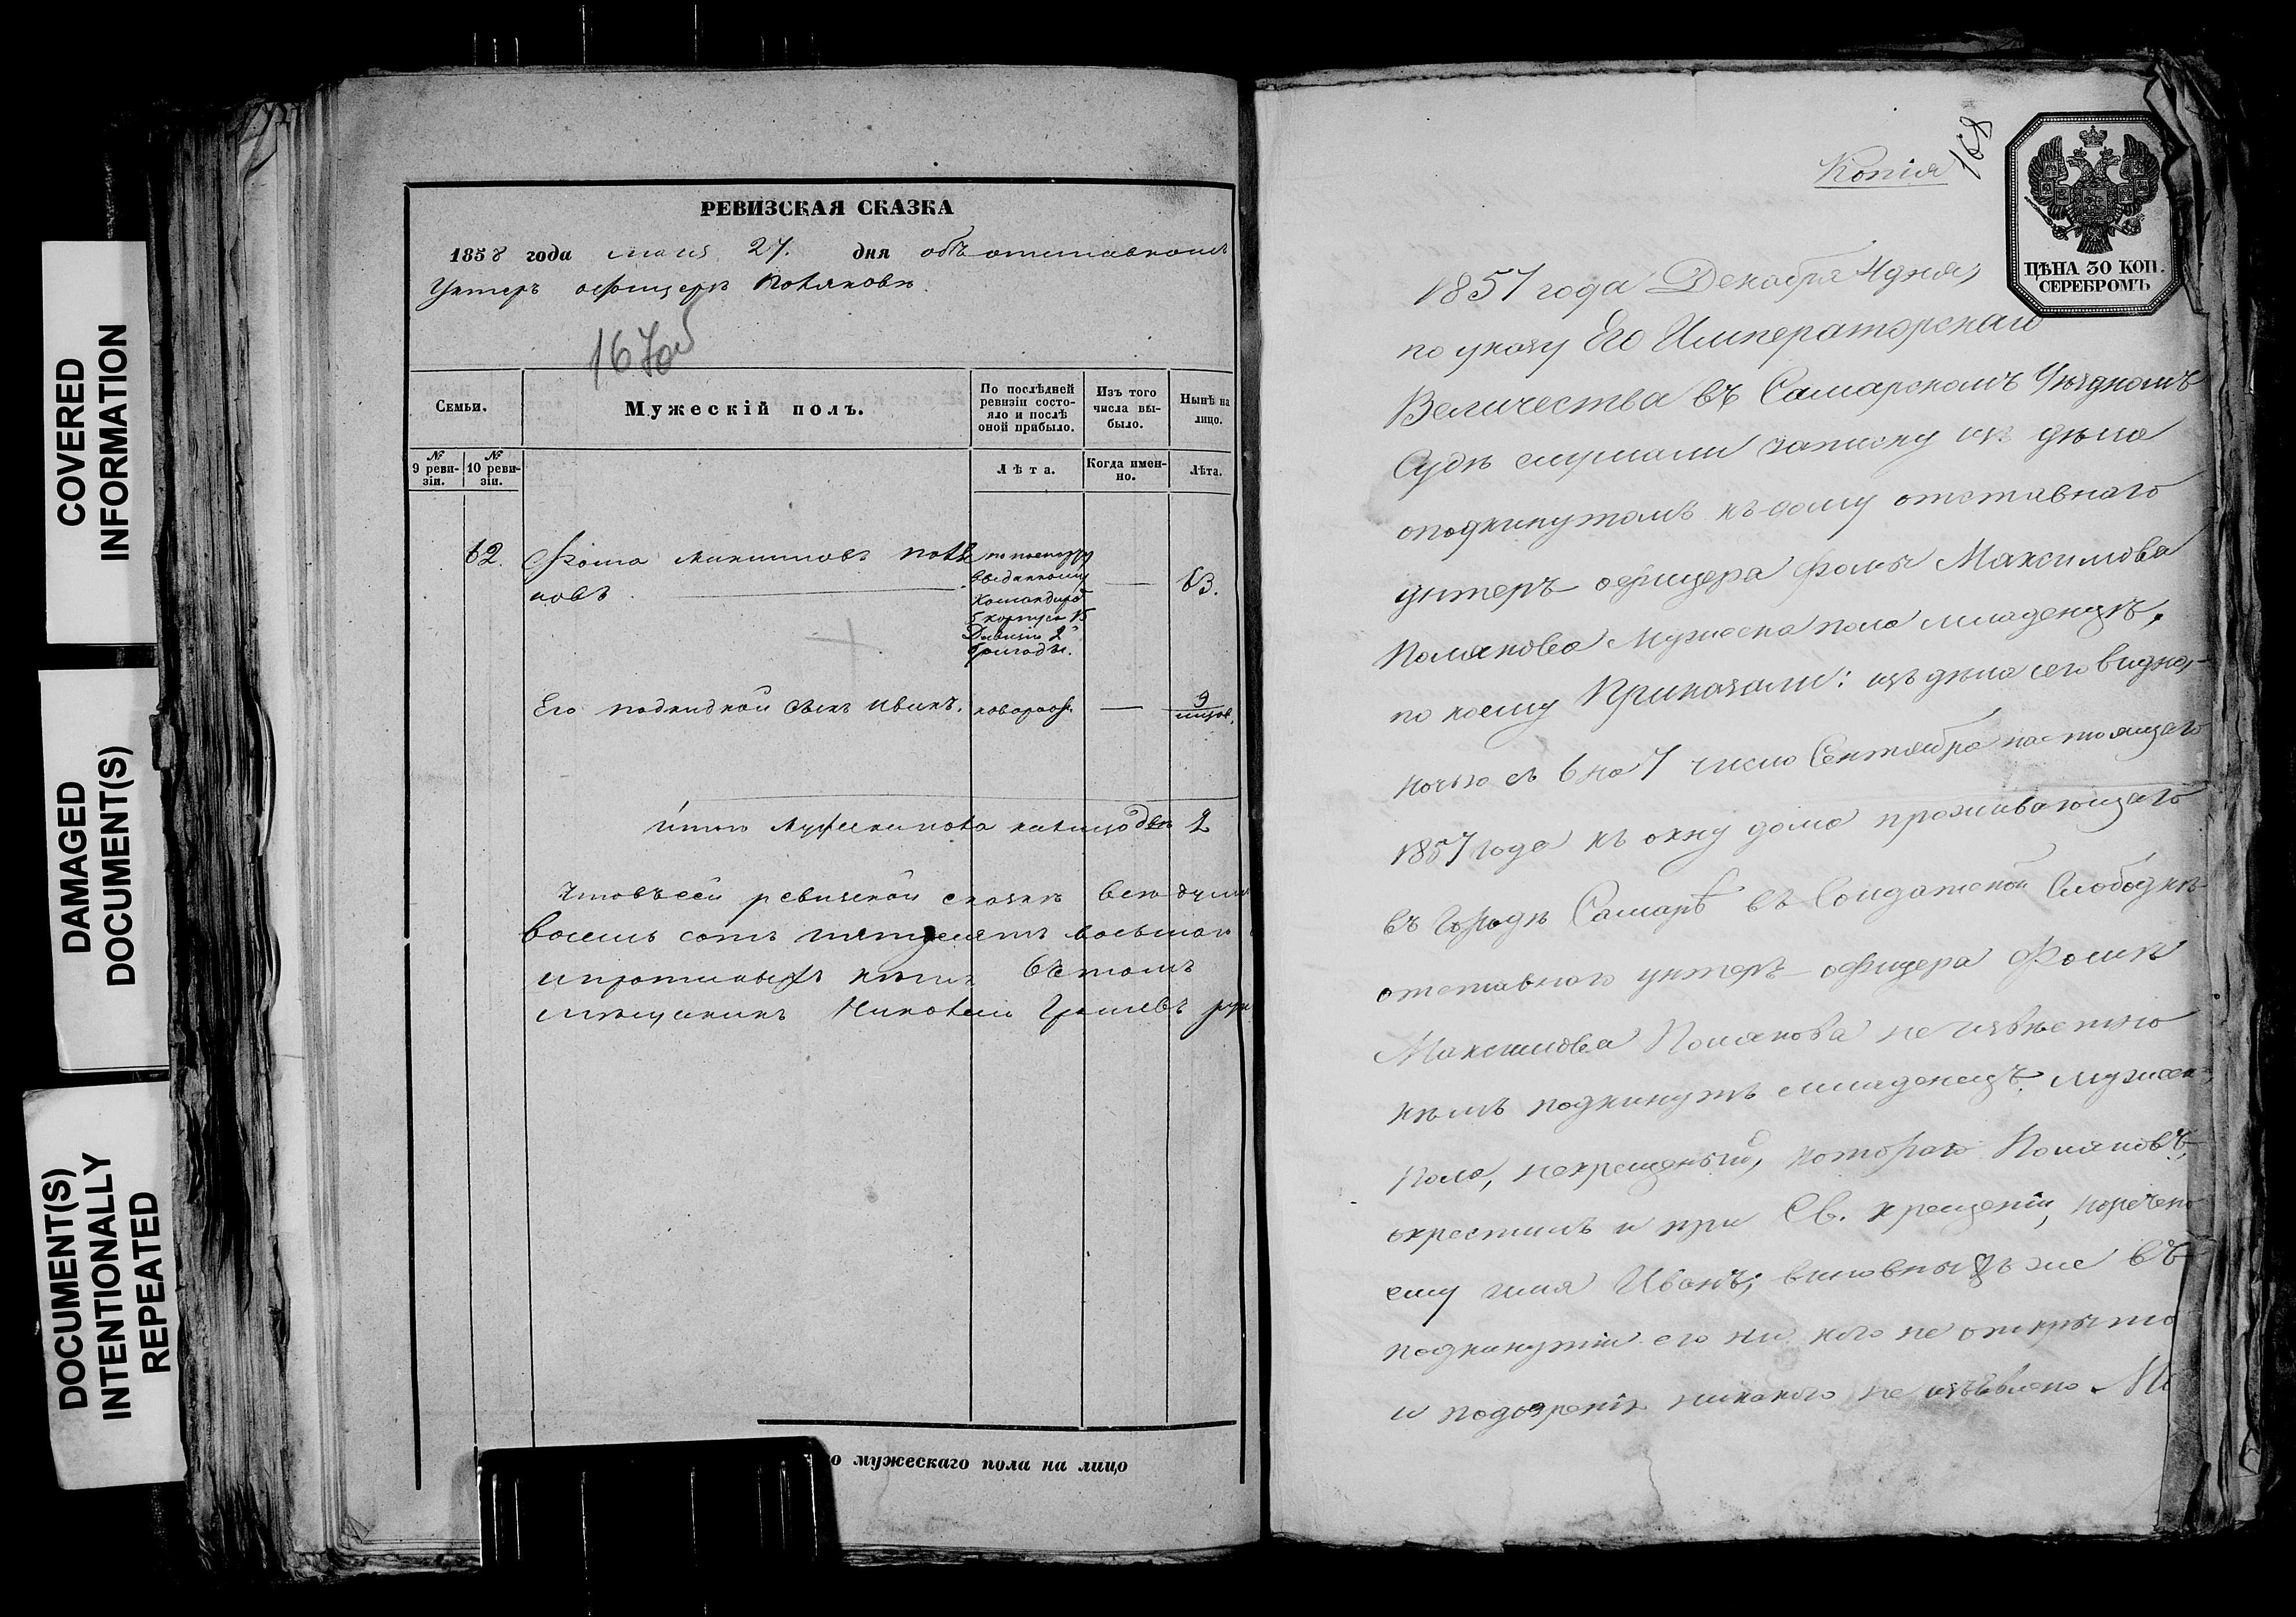 COVERED
INFORMATION
DAMAGED
DOCUMENT(S)
DOCUMENT(S)
INTENTIONALLY
REPEATED
РЕВИЗСКАЯ СКАЗКА
1858 года мая 27. дня объ отставномъ
Унтеръ офицерѣ Поляковѣ.
167об
Семьи.
Мужескій полъ.
По послѣдней
ревизіи состо-
яло и послѣ
оной прибыло.
Изъ того
числа вы-
было.
Нынѣ на
лицо.
№
9 реви-
зіи.
№
10 реви-
зіи.
Лѣта.
Когда имен-
но.
Лѣта.
62. Фома Максимовъ Поля
ковъ
по паспорту
выданному
Командиромъ
5 корпуса 15
Дивизіи 2й
бригады.
63.
Его подкидной сынъ Иванъ. новорож. 9 мѣсов.
Итого мужеска пола налицо двѣ 2
Что въ сей ревизской сказкѣ
восемь сотъ пятдесятъ восьмаго
въ томъ
мѣщанинъ Николай
о мужескаго пола на лицо
168
Копія
ЦѢНА 30 КОП.
СЕРЕБРОМЪ
1857 года Декабря 4 дня,
по указу Его Императорскаго
Величества въ Самарскомъ Уѣздномъ
Судѣ слушали записку изъ дѣла
о подкинутомъ къ дому отставнаго
унтеръ-офицера Фомы Максимова
Полякова мужеска пола младенцѣ,
по коему Приказали: изъ дѣла сего видно,
ночью съ 6 на 7 число Сентября настоящаго
1857 года къ окну дома проживающаго
въ Городѣ Самарѣ въ Солдатской Слободкѣ
отставного унтеръ-офицера Фомы
Максимова Полякова неизвѣстно
кѣмъ подкинутъ младенецъ мужеска
пола, некрещеный, котораго Поляковъ,
окрестилъ и при Св. крещеніи, наречено
ему имя Иванъ; виновныхъ же въ
подкинутіи его ни кого не открыто
и подозрѣнія никакого не изъявлено.